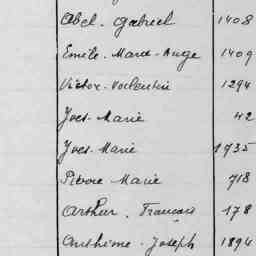 Abel. Gabriel 1408
Emile. Marie. Ange 1409
Victor. Valentin 1294
Yves. Marie 42
Yves. Marie 1735
Pierre Marie 718
Arthur. François 178
Anthime. Joseph 1894